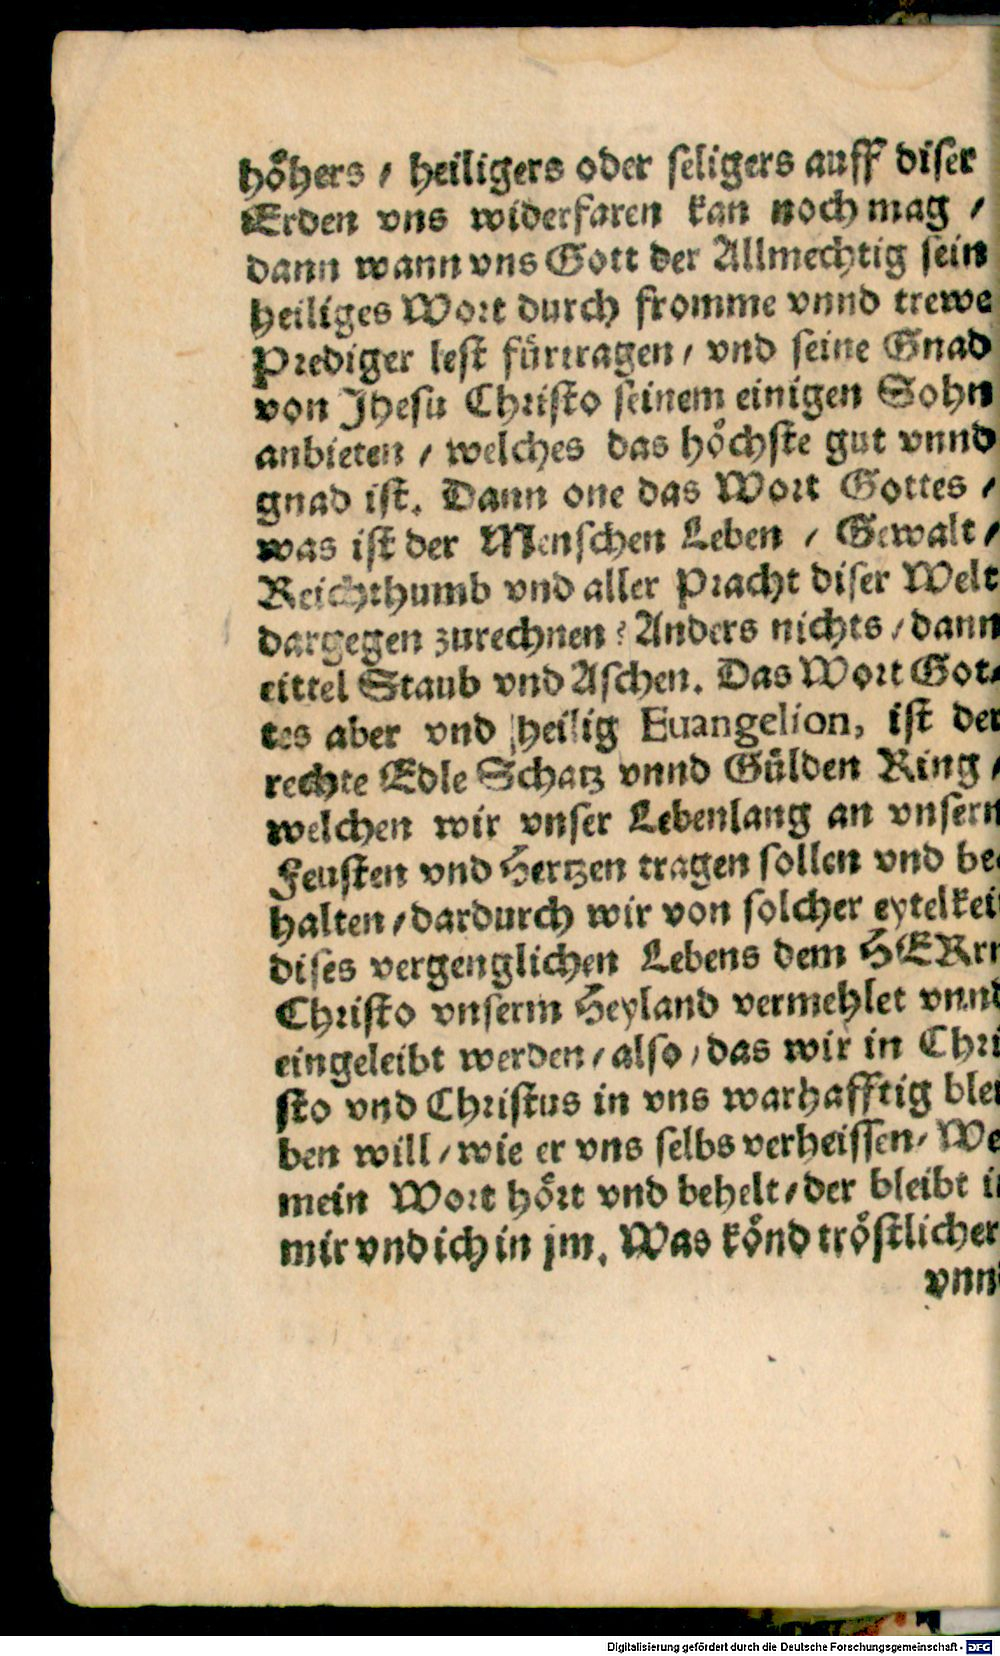 hoͤhers / heiligers oder seligers auff diser
Erden vns widerfaren kan noch mag /
dann wann vns Gott der Allmechtig sein
heiliges Wort durch fromme vnnd trewe
Prediger lest fuͤrtragen / vnd seine Gnad
von Jhesu Christo seinem einigen Sohn
anbieten / welches das hoͤchste gut vnnd
gnad ist. Dann one das Wort Gottes /
was ist der Menschen Leben / Gewalt /
Reichthumb vnd aller Pracht diser Welt
dargegen zurechnen? Anders nichts / dann
eittel Staub vnd Aschen. Das Wort Got-
tes aber vnd heilig Euangelion, ist der
rechte Edle Schatz vnnd Guͤlden Ring /
welchen wir vnser Lebenlang an vnsern
Feusten vnd Hertzen tragen sollen vnd be-
halten / dardurch wir von solcher eytelkei
dises vergenglichen Lebens dem HERrn
Christo vnserm Heyland vermehlet vnnd
eingeleibt werden / also / das wir in Chri
sto vnd Christus in vns warhafftig blei
ben will / wie er vns selbs verheissen / We
mein Wort hoͤrt vnd behelt / der bleibt i
mir vnd ich in jm. Was koͤnd troͤstlicher
vnn
Digitalisierung gefördert durch die Deutsche Forschungsgemeinschaft - DFG